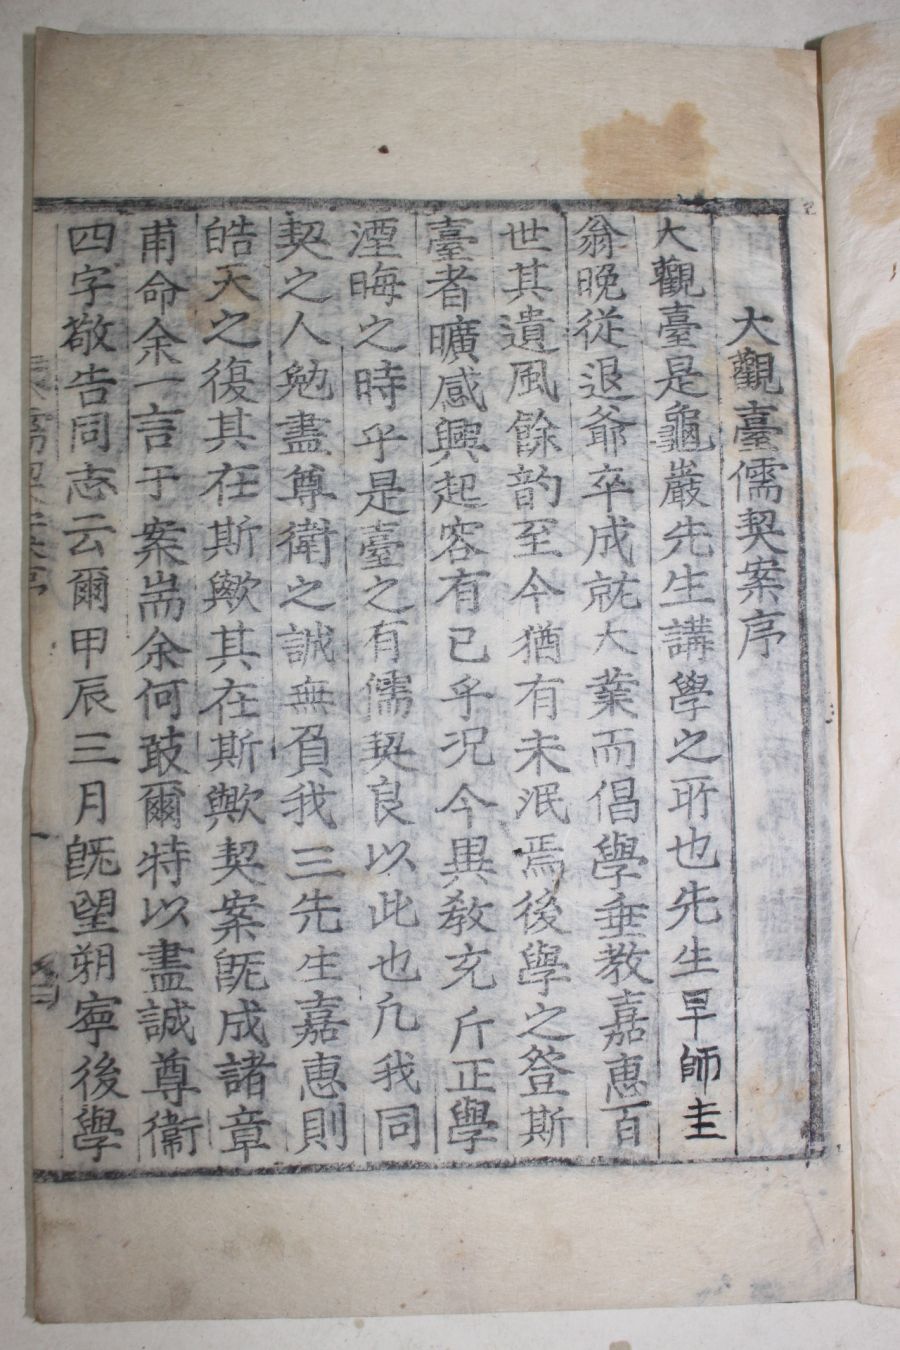 大觀臺儒契案序
大觀臺是龜巖先生講學之所也先生早師圭
翁晚從退爺卒成就大業而倡學垂教嘉惠百
世其遺風餘韵至今猶有未泯焉後學之登斯
臺者曠感興起容有已乎况今異教充斥正學
湮晦之時乎是臺之有儒契良以此也凡我同
契之人勉盡尊衛之誠無負我三先生嘉惠則
皓天之復其在斯歟其在斯歟契案旣成諸章
甫命余一言于案耑余何敢爾特以盡誠尊衛
四字敬告同志云爾甲辰三月旣望朔寧後學